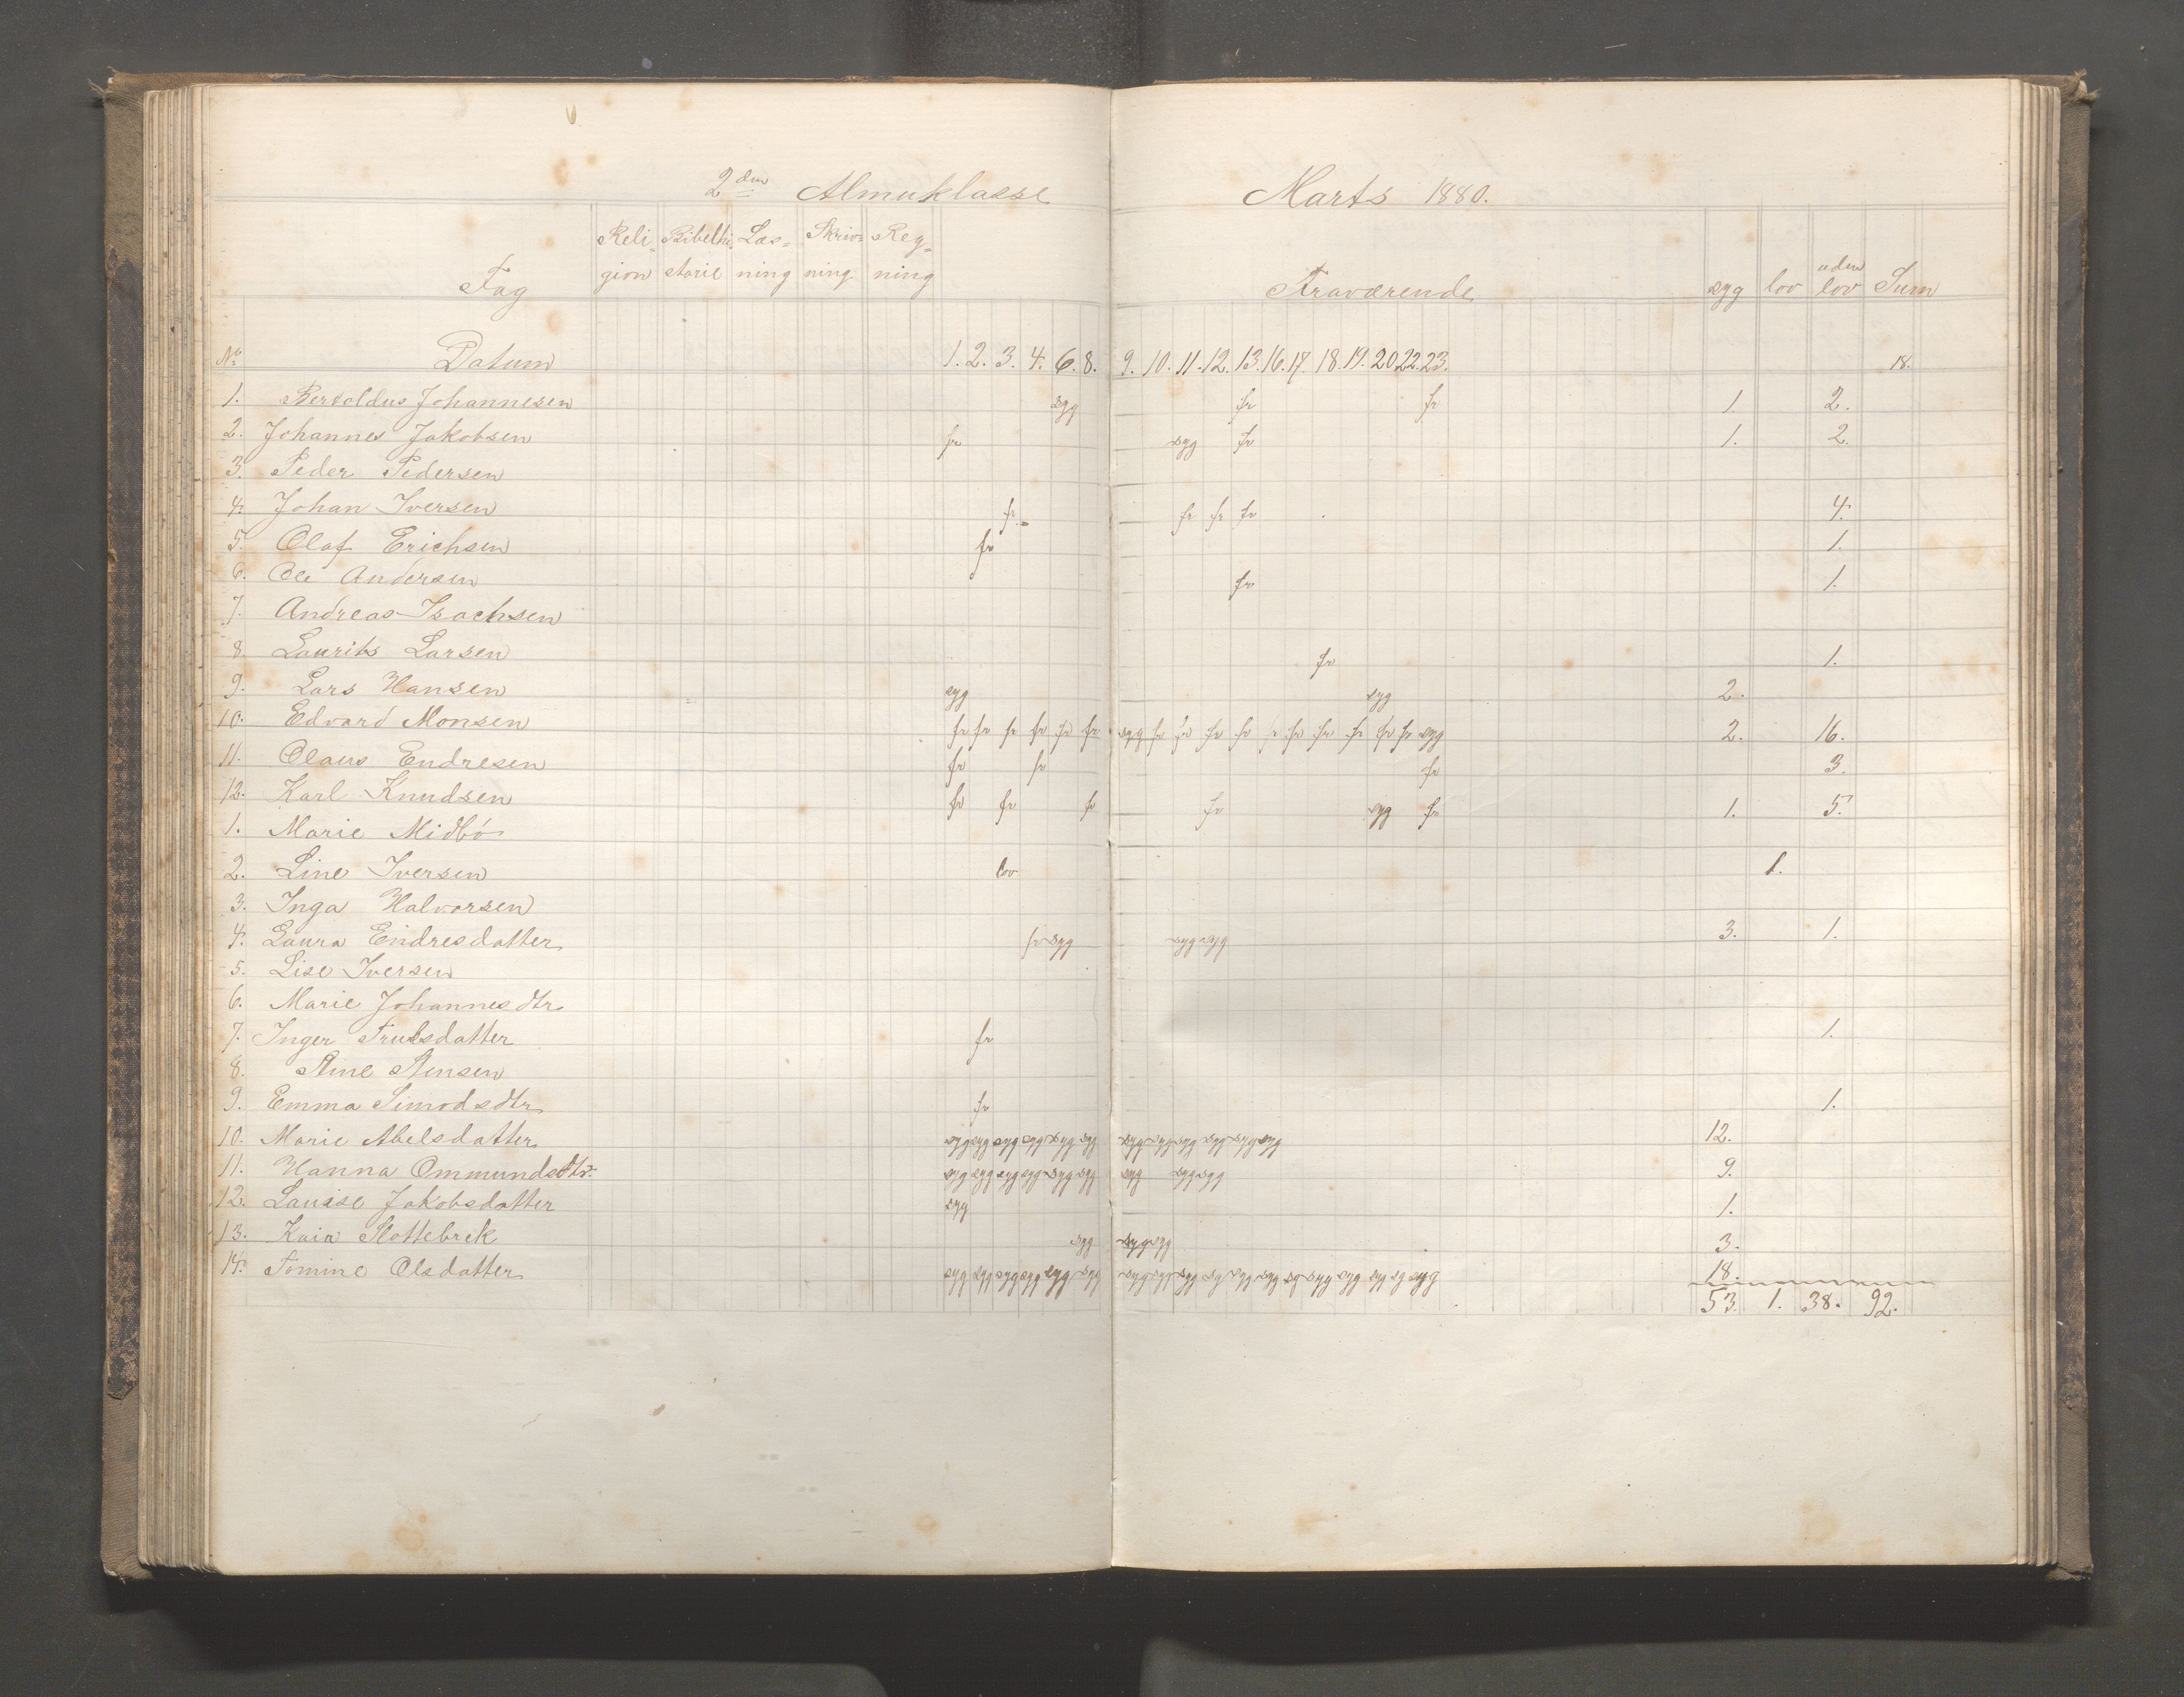 2den Almuklasse Marts 1880.
Fag Religion Bibelhistorie Læsning Skrivning Regning Fraværende syg lov uden lov Sum
No Datum 1. 2. 3. 4. 6. 8. 9. 10. 11. 12. 13. 16. 17. 18. 19. 20. 22. 23. 18.
1. Bertoldus Johannesen syg fr fr 1. 2.
2. Johannes Jakobsen fr syg fr 1. 2.
3. Peder Pedersen
4. Johan Iversen fr fr fr fr 4.
5. Olaf Erichsen fr 1.
6. Ole Andersen fr 1.
7. Andreas Isachsen
8. Laurits Larsen fr 1.
9. Lars Hansen syg syg 2.
10. Edvard Monsen fr fr fr fr fr fr syg fr fr fr fr fr fr fr fr fr fr syg 2. 16.
11. Olaus Endresen fr fr fr 3.
12. Karl Knudsen fr fr fr fr syg fr 1. 5.
1. Marie Midbö
2. Line Iversen lov 1.
3. Inga Halvorsen
4. Laura Endresdatter fr syg syg syg 3. 1.
5. Lise Iversen
6. Marie Johannesdtr
7. Inger Trulsdatter fr 1.
8. Stine Stensen
9. Emma Simodsdtr fr 1.
10. Marie Abelsdatter syg syg syg syg syg syg syg syg syg syg syg syg 12.
11. Hanna Ommundsdtr. syg syg syg syg syg syg syg syg syg 9.
12. Lauise Jakobsdatter syg 1.
13. Kaia Slottebrek syg syg syg 3.
14. Tomine Olsdatter syg syg syg syg syg syg syg syg syg syg syg syg syg syg syg syg syg syg 18.
53. 1. 38. 92.